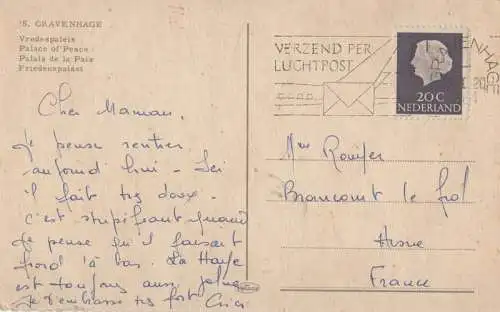 'S. GRAVENHAGE
Vredespaleis
Palace of Peace
Palais de la Paix
Friedenspalast
VERZEND PER
LUCHTPOST
20 C
NEDERLAND
Cher Maman,
Je pense rentrer
aujourd'hui - Ici
il fait très doux.
c'est stupéfiant quand
Je pense qu'il faisait
froid là bas. La Haye
est toujours aussi
Je t'embrasse très fort Cricri
Mme
Brancourt le
Aisne
France